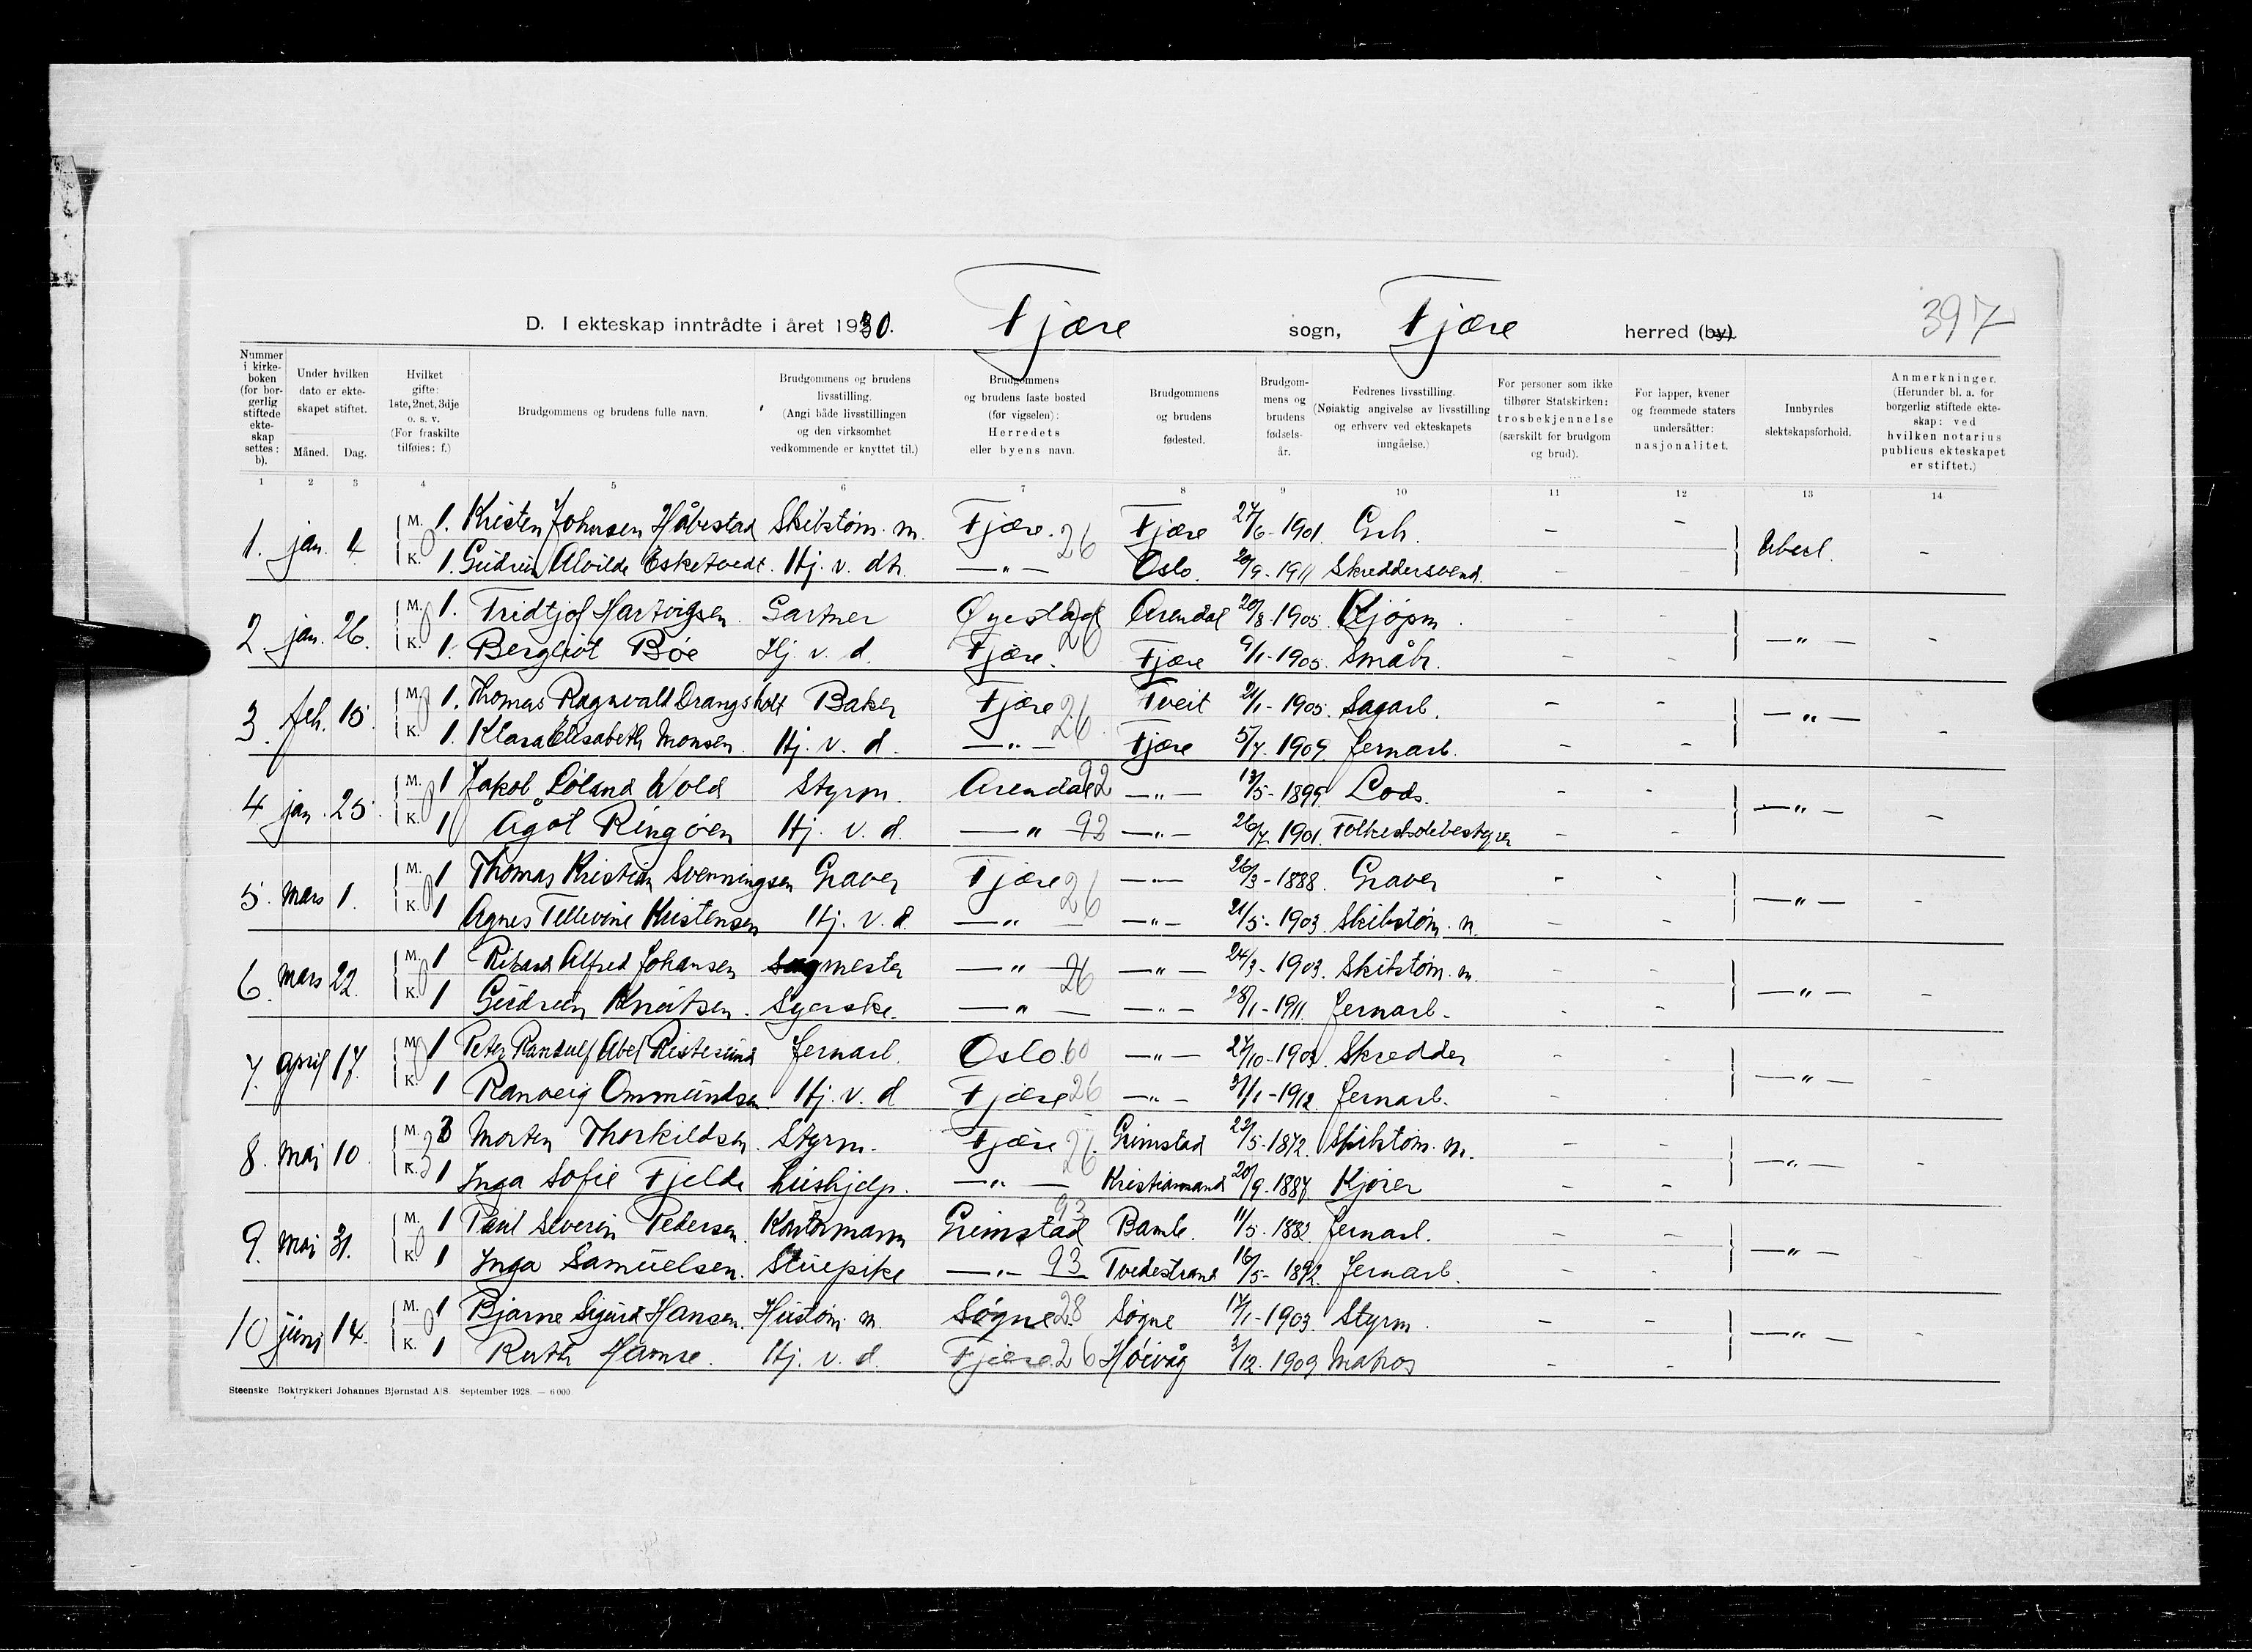 D. I ekteskap inntrådte i året 1930. Fjære sogn, Fjære herred (by). 397
Nummer i kirkeboken (for borgerlig stiftede ekteskap settes: b). Under hvilken dato er ekteskapet stiftet. Måned. Dag. Hvilket gifte: 1ste, 2net, 3dje o. s. v. (For fraskilte tilføies: f.) Brudgommens og brudens fulle navn. Brudgommens og brudens livsstilling. (Angi både livsstillingen og den virksomhet vedkommende er knyttet til.) Brudgommens og brudens faste bosted (før vigselen): Herredets eller byens navn. Brudgommens og brudens fødested. Brudgommens og brudens fødselsår. Fedrenes livsstilling. (Nøiaktig angivelse av livsstilling og erhverv ved ekteskapets inngåelse.) For personer som ikke tilhører Statskirken: trosbekjennelse (særskilt for brudgom og brud). For lapper, kvener og fremmede staters undersåtter: nasjonalitet. Innbyrdes slektskapsforhold. Anmerkninger. (Herunder bl. a. for borgerlig stiftede ekteskap: ved hvilken notarius publicus ekteskapet er stiftet.)
1 2 3 4 5 6 7 8 9 10 11 12 13 14
1. jan. 4 M. 1. Kristen Johnsen Håbestad Skibstøm. m. Fjære. 26 Fjære 27/6-1901. Grb. - - Ubesl. -
K. 1. Gudrun Alvilde Esketvedt. Hj. v. dtr. —"— Oslo. 20/9-1911 Skreddersvend. - -
2. jan. 26. M. 1. Fridtjof Hartvigsen. Gartner Øyestad Arendal 20/8-1905. Kjøpm. - - —"— -
K. 1. Bergliot Bøe Hj. v. d. Fjære. 26 Fjære 9/1-1905. Småbr. - -
3. feb. 15. M. 1. Thomas Ragnvald Drangsholt Baker Fjære 26 Tveit 21/1-1905. Sagarb. - - —"— -
K. 1. Klara Elisabeth Monsen. Hj. v. d. —"— Fjære 5/7-1909. Jernarb. - -
4 jan. 25. M. 1 Jakob Løland Wold Styrm. Arendal 92 —"— 13/5-1899. Lods. - - —"— -
K. 1 Ågot Ringøen Hj. v. d. —"— 92 —"— 26/7-1901. Folkeskolebestyrer - -
5. mars 1. M. 1 Thomas Kristian Svenningsen Graver Fjære 26 —"— 26/3-1888. Graver - - —"— -
K. 1 Agnes Tellevine Kristensen Hj. v. d. —"— —"— 21/5-1903. Skibstøm. m. - -
6. mars 22. M. 1 Rikard Alfred Johansen Sagmester —"— 26 —"— 24/3-1903. Skibstøm. m. - - —"— -
K. 1 Gudrun Knutsen. Syerske. —"— —"— 28/1-1911. Jernarb. - -
7. april 17. M. 1 Peter Randulf Abel Ristesund Jernarb. Oslo. 60 —"— 27/10-1903. Skredder - - —"— -
K. 1 Ranveig Ommundsen. Hj. v. d Fjære 26 —"— 31/1-1912. Jernarb. - -
8. mai 10. M. 3 Morten Thorkildsen. Styrm. Fjære 26 Grimstad 22/5-1872. Skibstøm. m. - - —"— -
K. 1 Inga Sofie Fjelde Hushjelp. —"— Kristiansand 20/9-1887 Kjører - -
9. mai 31. M. 1 Paul Severin Pedersen. Kontormann Grimstad 93 Bamle. 11/5-1882. Jernarb. - - —"— -
K. 1 Inga Samuelsen. Stuepike —"— 93 Tvedestrand 16/5-1892. Jernarb. - -
10 juni 14. M. 1 Bjarne Sigurd Hansen. Hustøm. m. Søgne 28 Søgne 17/1-1903. Styrm. - - —"— -
K. 1 Ruth Hamre. Hj. v. d. Fjære. 26 Høivåg 3/12-1909. Matros - -
Steenske Boktrykkeri Johannes Bjørnstad A/S. September 1928. — 6000.